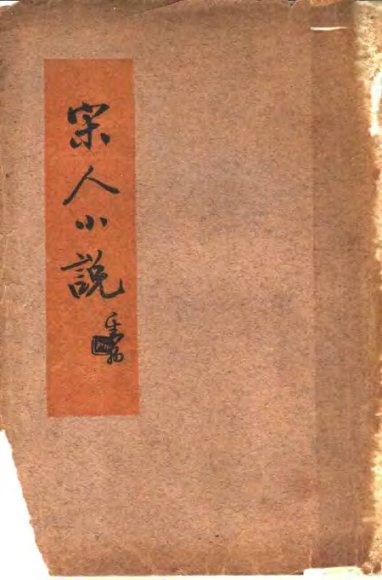 宋人小說